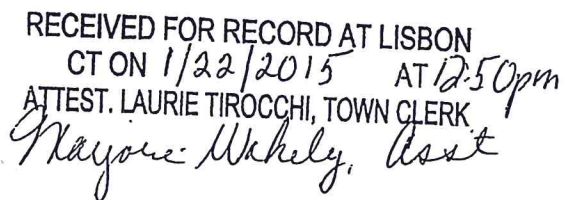 RECEIVED FOR RECORD AT LISBON
CT ON 1/22/2015 AT 12:50pm
ATTEST. LAURIE TIROCCHI, TOWN CLERK
Marjorie Wakely, Asst